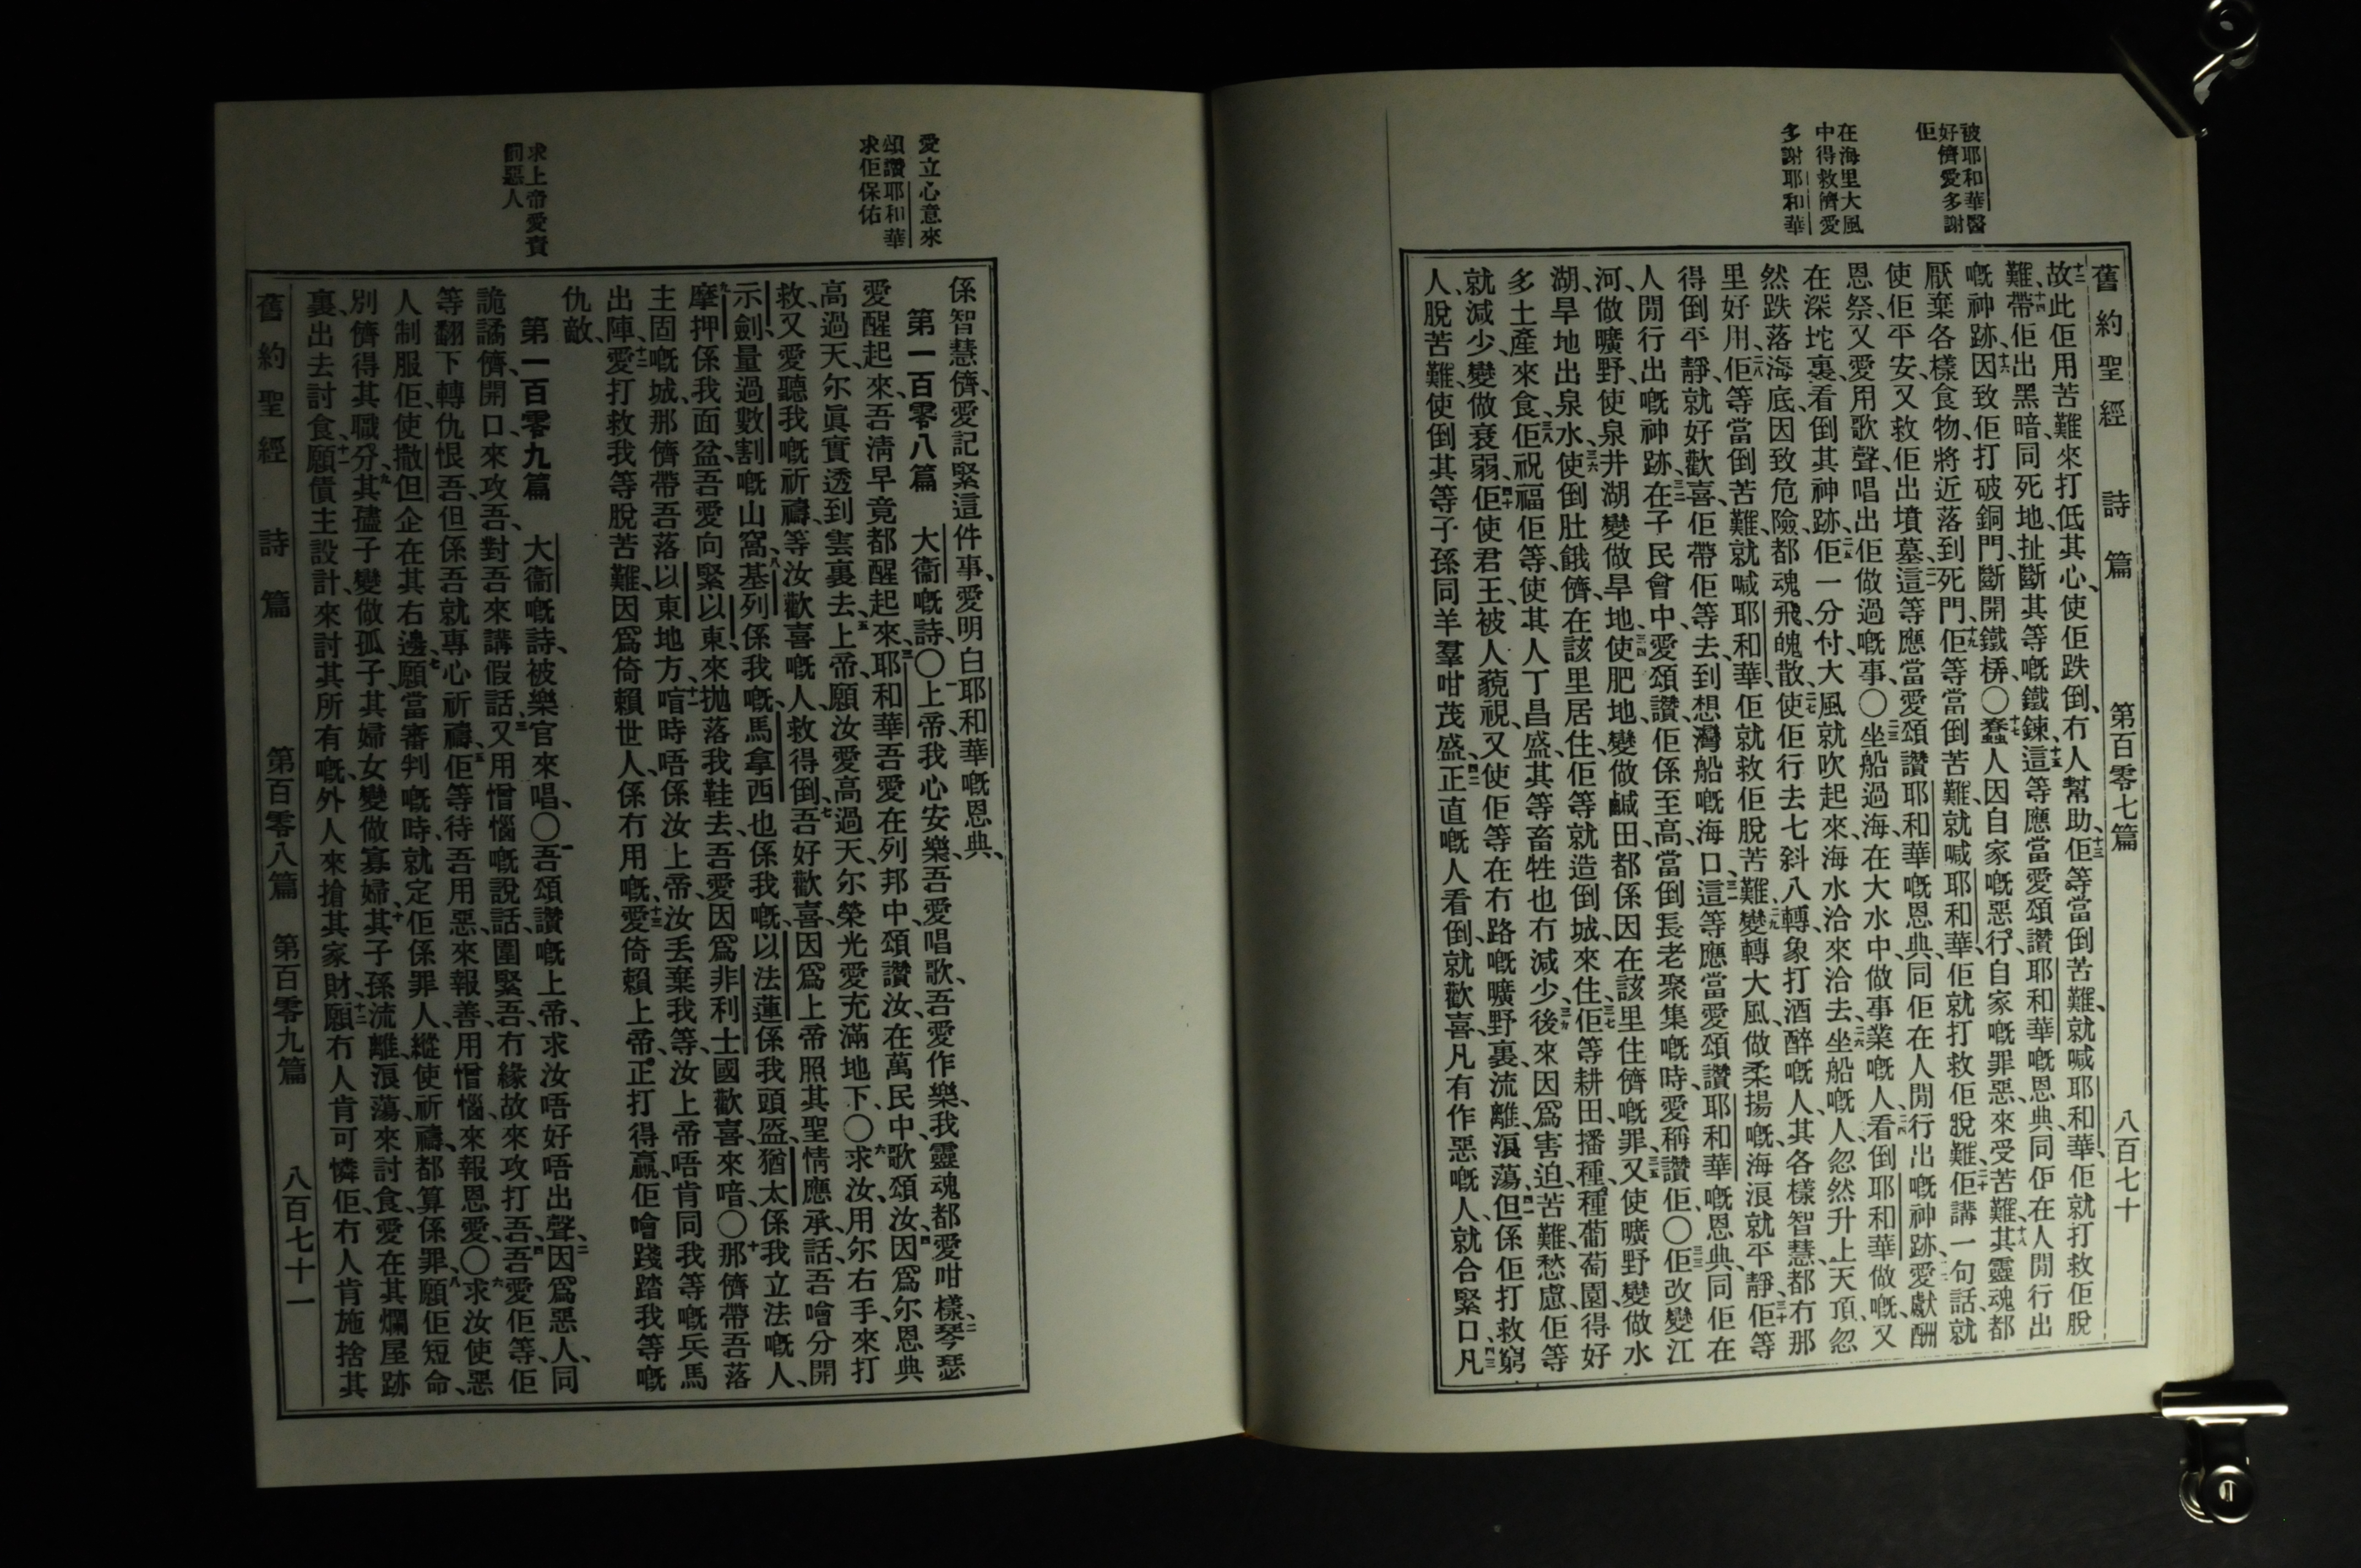 被耶和華醫
好儕愛多謝
佢
在海里大風
中得救儕愛
多謝耶和華
舊約聖經　詩篇　第百零七篇　八百七十
十二故此佢用苦難來打低其心、使佢跌倒、冇人幫助、十三佢等當倒苦難、就喊耶和華、佢就打救佢脫
難、十四帶佢出黑暗、同死地、扯斷其等嘅鐵鍊、十五這等應當愛頌讚耶和華嘅恩典、同佢在人閒行出
嘅神跡、十六因致佢打破銅門、斷開鐵橫〇十七蠢人因自家嘅惡行、自家嘅罪惡、來受苦難、十八其靈魂都
厭棄各樣食物、將近落到死門、十九佢等當倒苦難、就喊耶和華、佢就打救佢脫難、二十佢講一句話、就
使佢平安、又救佢出墳墓、二一這等應當愛頌讚耶和華嘅恩典、同佢在人閒行出嘅神跡、二二愛獻酬
恩祭、又愛用歌聲、唱出佢做過嘅事、〇二三坐船過海、在大水中、做事業嘅人、二四看倒耶和華做嘅、又
在深坨裏、看倒其神跡、二五佢一分付大風就吹起來、海水洽來洽去、二六坐船嘅人、忽然升上天頂、忽
然跌落海底、因致危險、都魂飛魄散、二七使佢行去七斜八轉、象打酒醉嘅人、其各樣智慧、都冇那
里好用、二八佢等當倒苦難、就喊耶和華、佢就救佢脫苦難、二九變轉大風、做柔揚嘅、海浪就平靜、三十佢等
得倒平靜、就好歡喜、佢帶佢等去、到想灣船嘅海口、三一這等應當愛頌讚耶和華嘅恩典、同佢在
人閒行出嘅神跡、三二在子民會中、愛頌讚佢係至高、當倒長老聚集嘅時、愛稱讚佢、〇三三佢改變江
河、做曠野、使泉井湖變做旱地、三四使肥地、變做鹹田、都係因在該里住儕嘅罪、三五又使曠野變做水
湖、旱地出泉水、三六使倒肚餓儕、在該里居住、佢等就造倒城、來住、三七佢等耕田播種、種葡萄園、得好
多土產來食、三八佢祝福佢等、使其人丁昌盛、其等畜牲也冇減少、三九後來因爲害迫、苦難、愁慮、佢等
就減少、變做衰弱、四十佢使君王、被人藐視、又使佢等在冇路嘅曠野裏、流離浪蕩、四一但係佢打救窮
人、脫苦難、使倒其等子孫同羊羣咁茂盛、四二正直嘅人看倒、就歡喜、凡有作惡嘅人、就合緊口、四三凡
愛立心意來
頌讚耶和華
求佢保佑
求上帝愛責
罰惡人
係智慧儕、愛記緊這件事、愛明白耶和華嘅恩典、
第一百零八篇　大衞嘅詩、〇一上帝我心安樂、吾愛唱歌、吾愛作樂、我靈魂都愛咁樣、二琴瑟
愛醒起來、吾淸早竟都醒起來、三耶和華吾愛在列邦中、頌讚汝、在萬民中、歌頌汝、四因爲尔恩典
高過天、尔眞實透到雲裏去、五上帝、願汝愛高過天、尔榮光愛充滿地下、〇六求汝、用尔右手、來打
救、又愛聽我嘅祈禱、等汝歡喜嘅人、救得倒、七吾好歡喜、因爲上帝照其聖情應承話、吾噲分開
示劍、量過數割嘅山窩、八基列係我嘅、馬拿西也係我嘅、以法蓮係我頭盔、猶太係我立法嘅人、
九摩押係我面盆、吾愛向緊以東、來拋落我鞋去、吾愛因爲非利士國歡喜來喑〇十那儕帶吾落
主固嘅城、那儕帶吾落以東地方、十一喑時唔係汝上帝、汝丢棄我等、汝上帝唔肯同我等嘅兵馬
出陣、十二愛打救我等脫苦難、因爲倚賴世人、係冇用嘅、十三愛倚賴上帝、正打得贏、佢噲踐踏我等嘅
仇敵、
第一百零九篇　大衞嘅詩、被樂官來唱、〇一吾頌讚嘅上帝、求汝唔好唔出聲、二因爲惡人、同
詭譎儕、開口、來攻吾、對吾來講假話、三又用憎惱嘅說話、圍緊吾、冇緣故來攻打吾、四吾愛佢等、佢
等翻下轉仇恨吾、但係吾就專心祈禱、五佢等待吾用惡、來報善、用憎惱、來報恩愛、〇六求汝使惡
人制服佢、使撒但企在其右邊、七願當審判嘅時、就定佢係罪人、縱使祈禱、都算係罪、八願佢短命、
別儕得其職分、九其孺子變做孤子、其婦女變做寡婦、十其子孫流離浪蕩、來討食、愛在其爛屋跡
裏、出去討食、十一願債主設計、來討其所有嘅、外人來搶其家財、十二願冇人肯可憐佢、冇人肯施捨其
舊約聖經　詩篇　第百零八篇　第百零九篇　八百七十一